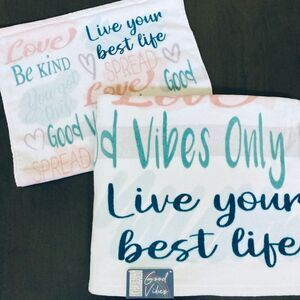 Love
Live your
best life
Be KIND
SPREAD
You got
this
Good
Love
Good V
SPREAD
d Vibes Only
Live your
best life
Good
Vibes